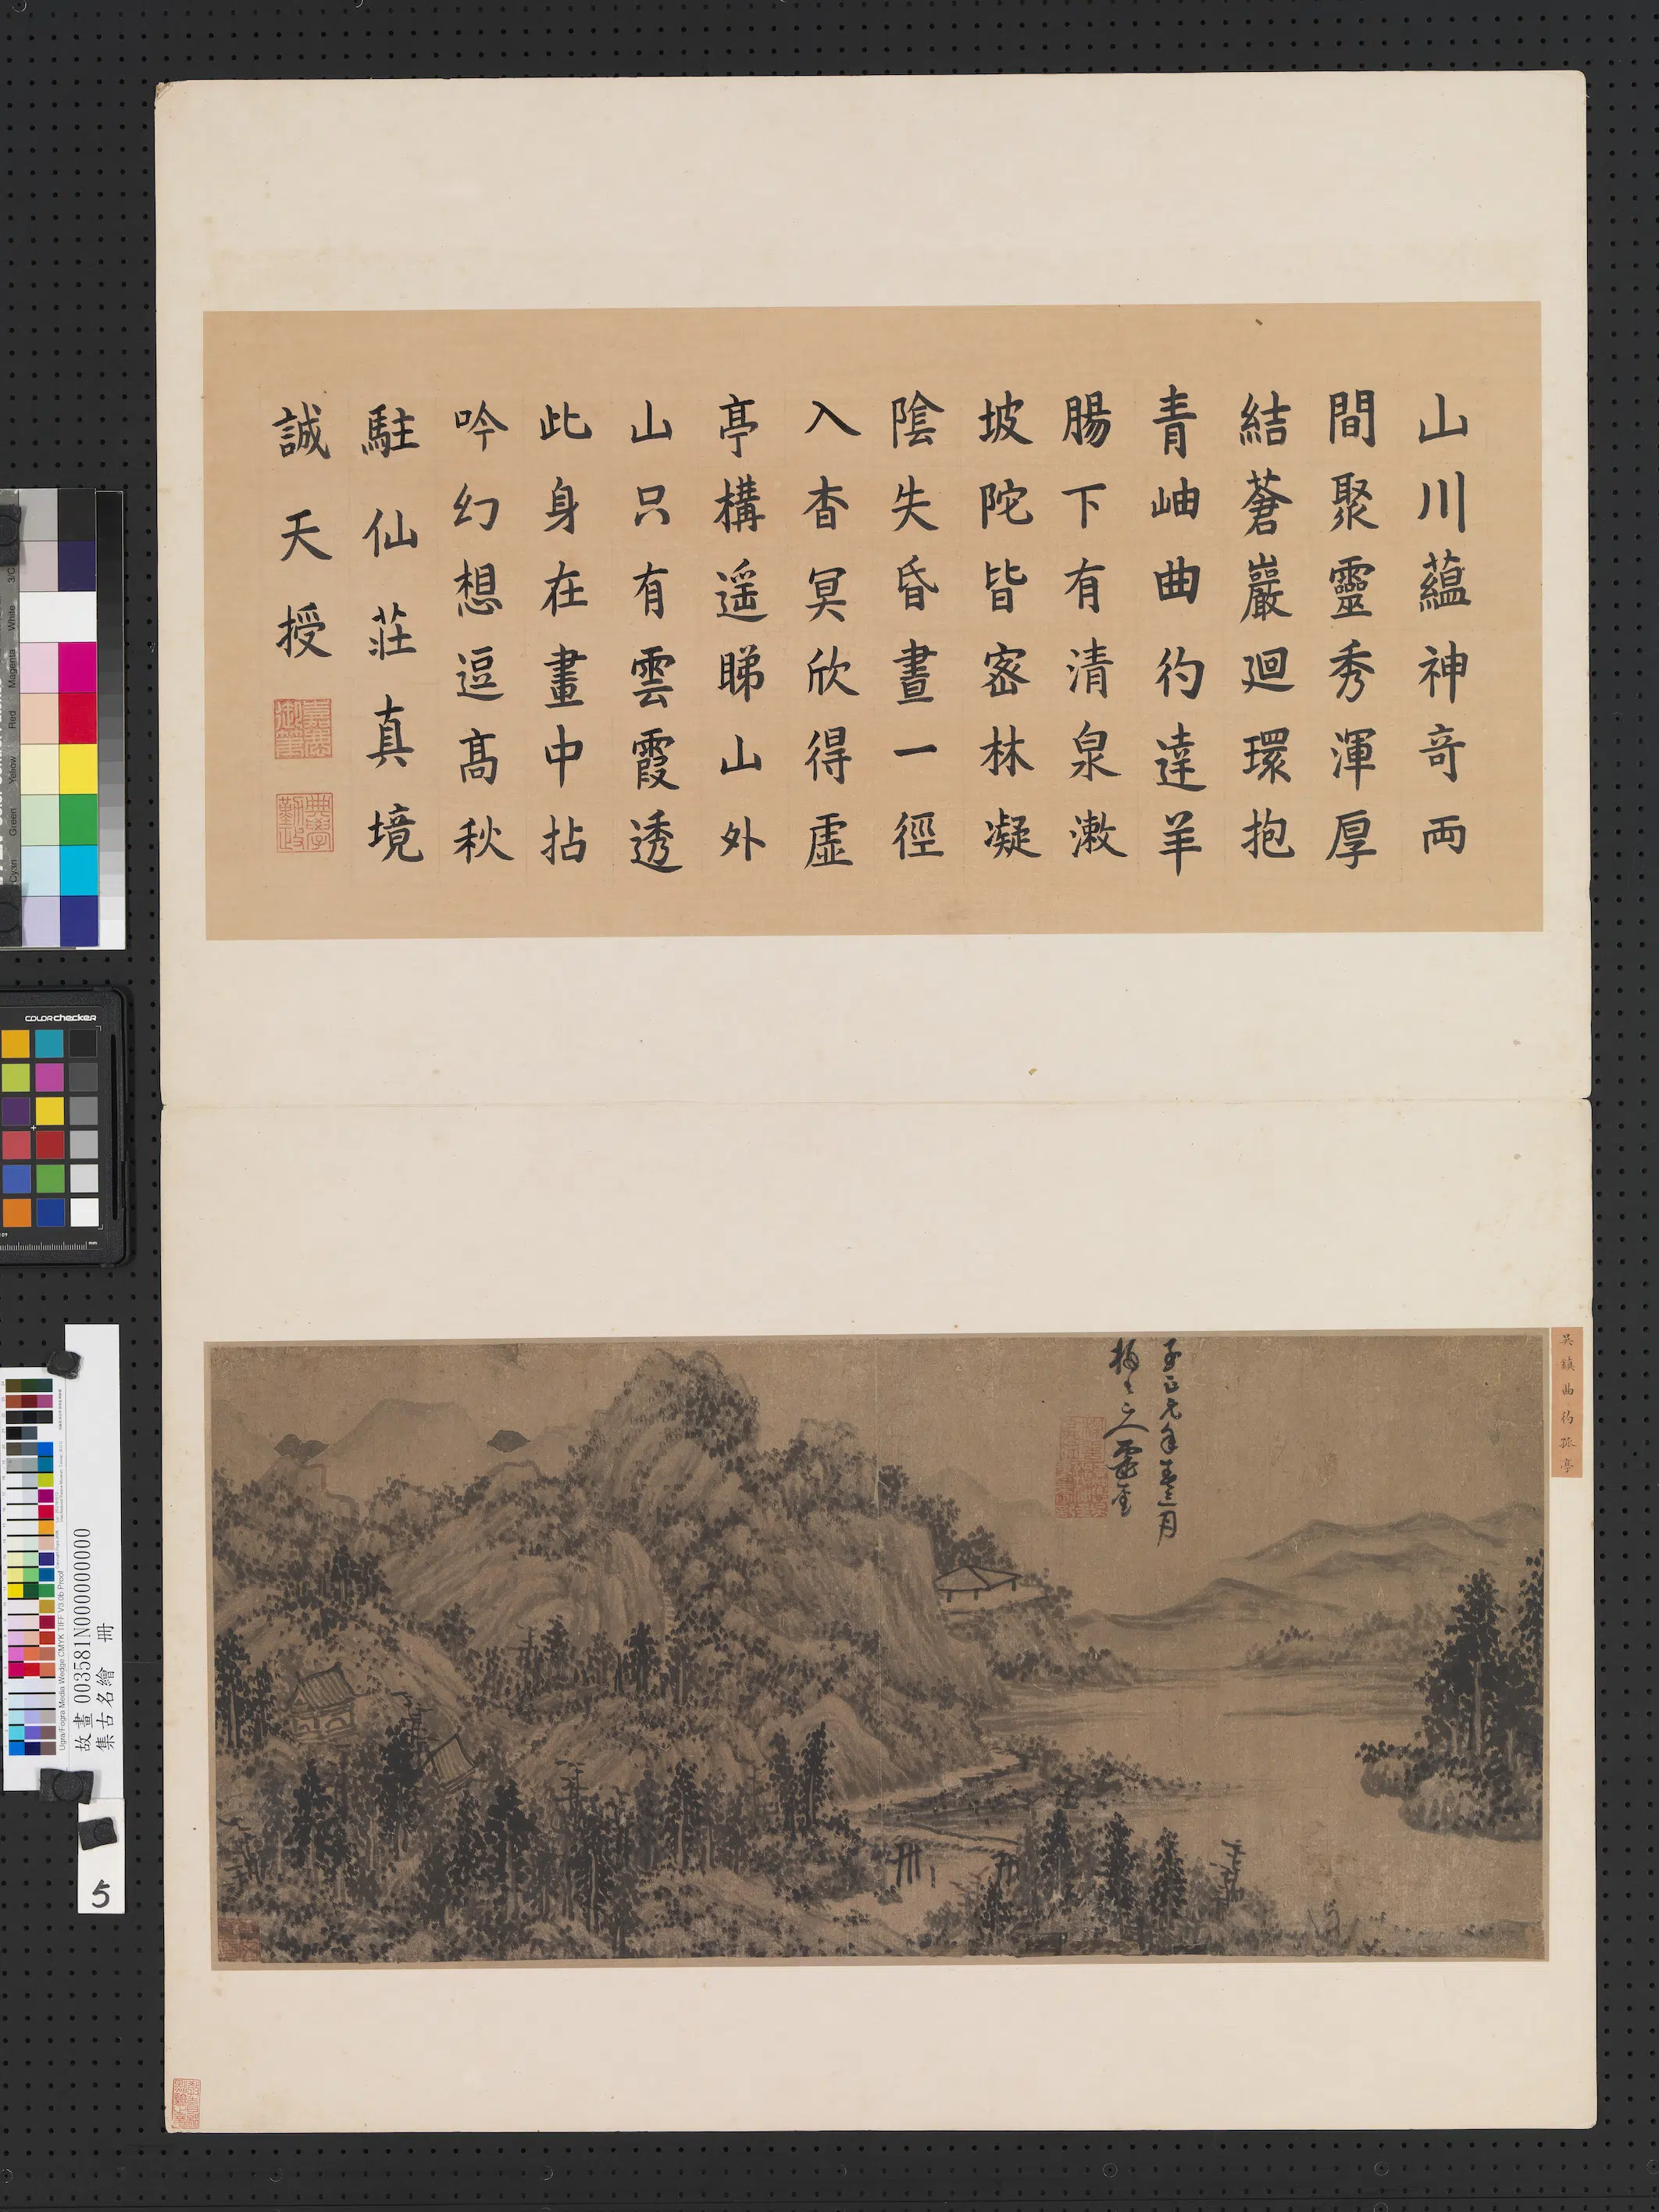 山川蘊神奇両
間聚靈秀渾厚
結蒼巖迴環抱
青岫曲彴達羊
腸下有清泉漱
坡陀皆宻林凝
陰失昏晝一徑
入杳冥欣得虛
亭構遥睇山外
山只有雲霞透
此身在畫中拈
吟幻想逗髙秋
駐仙莊真境
誠天授
嘉慶御筆
典學勤政
吳鎮曲彴孤亭
至正元年春三月
梅道人戲墨
colorchecker
mm
3/C
White
Magenta
Red
Yellow
Green
Cyan
Ugra/Fogra Media Wedge CMYK TIFF V3.0b Proof
故畫003581N000000000
集古名繪 冊
5